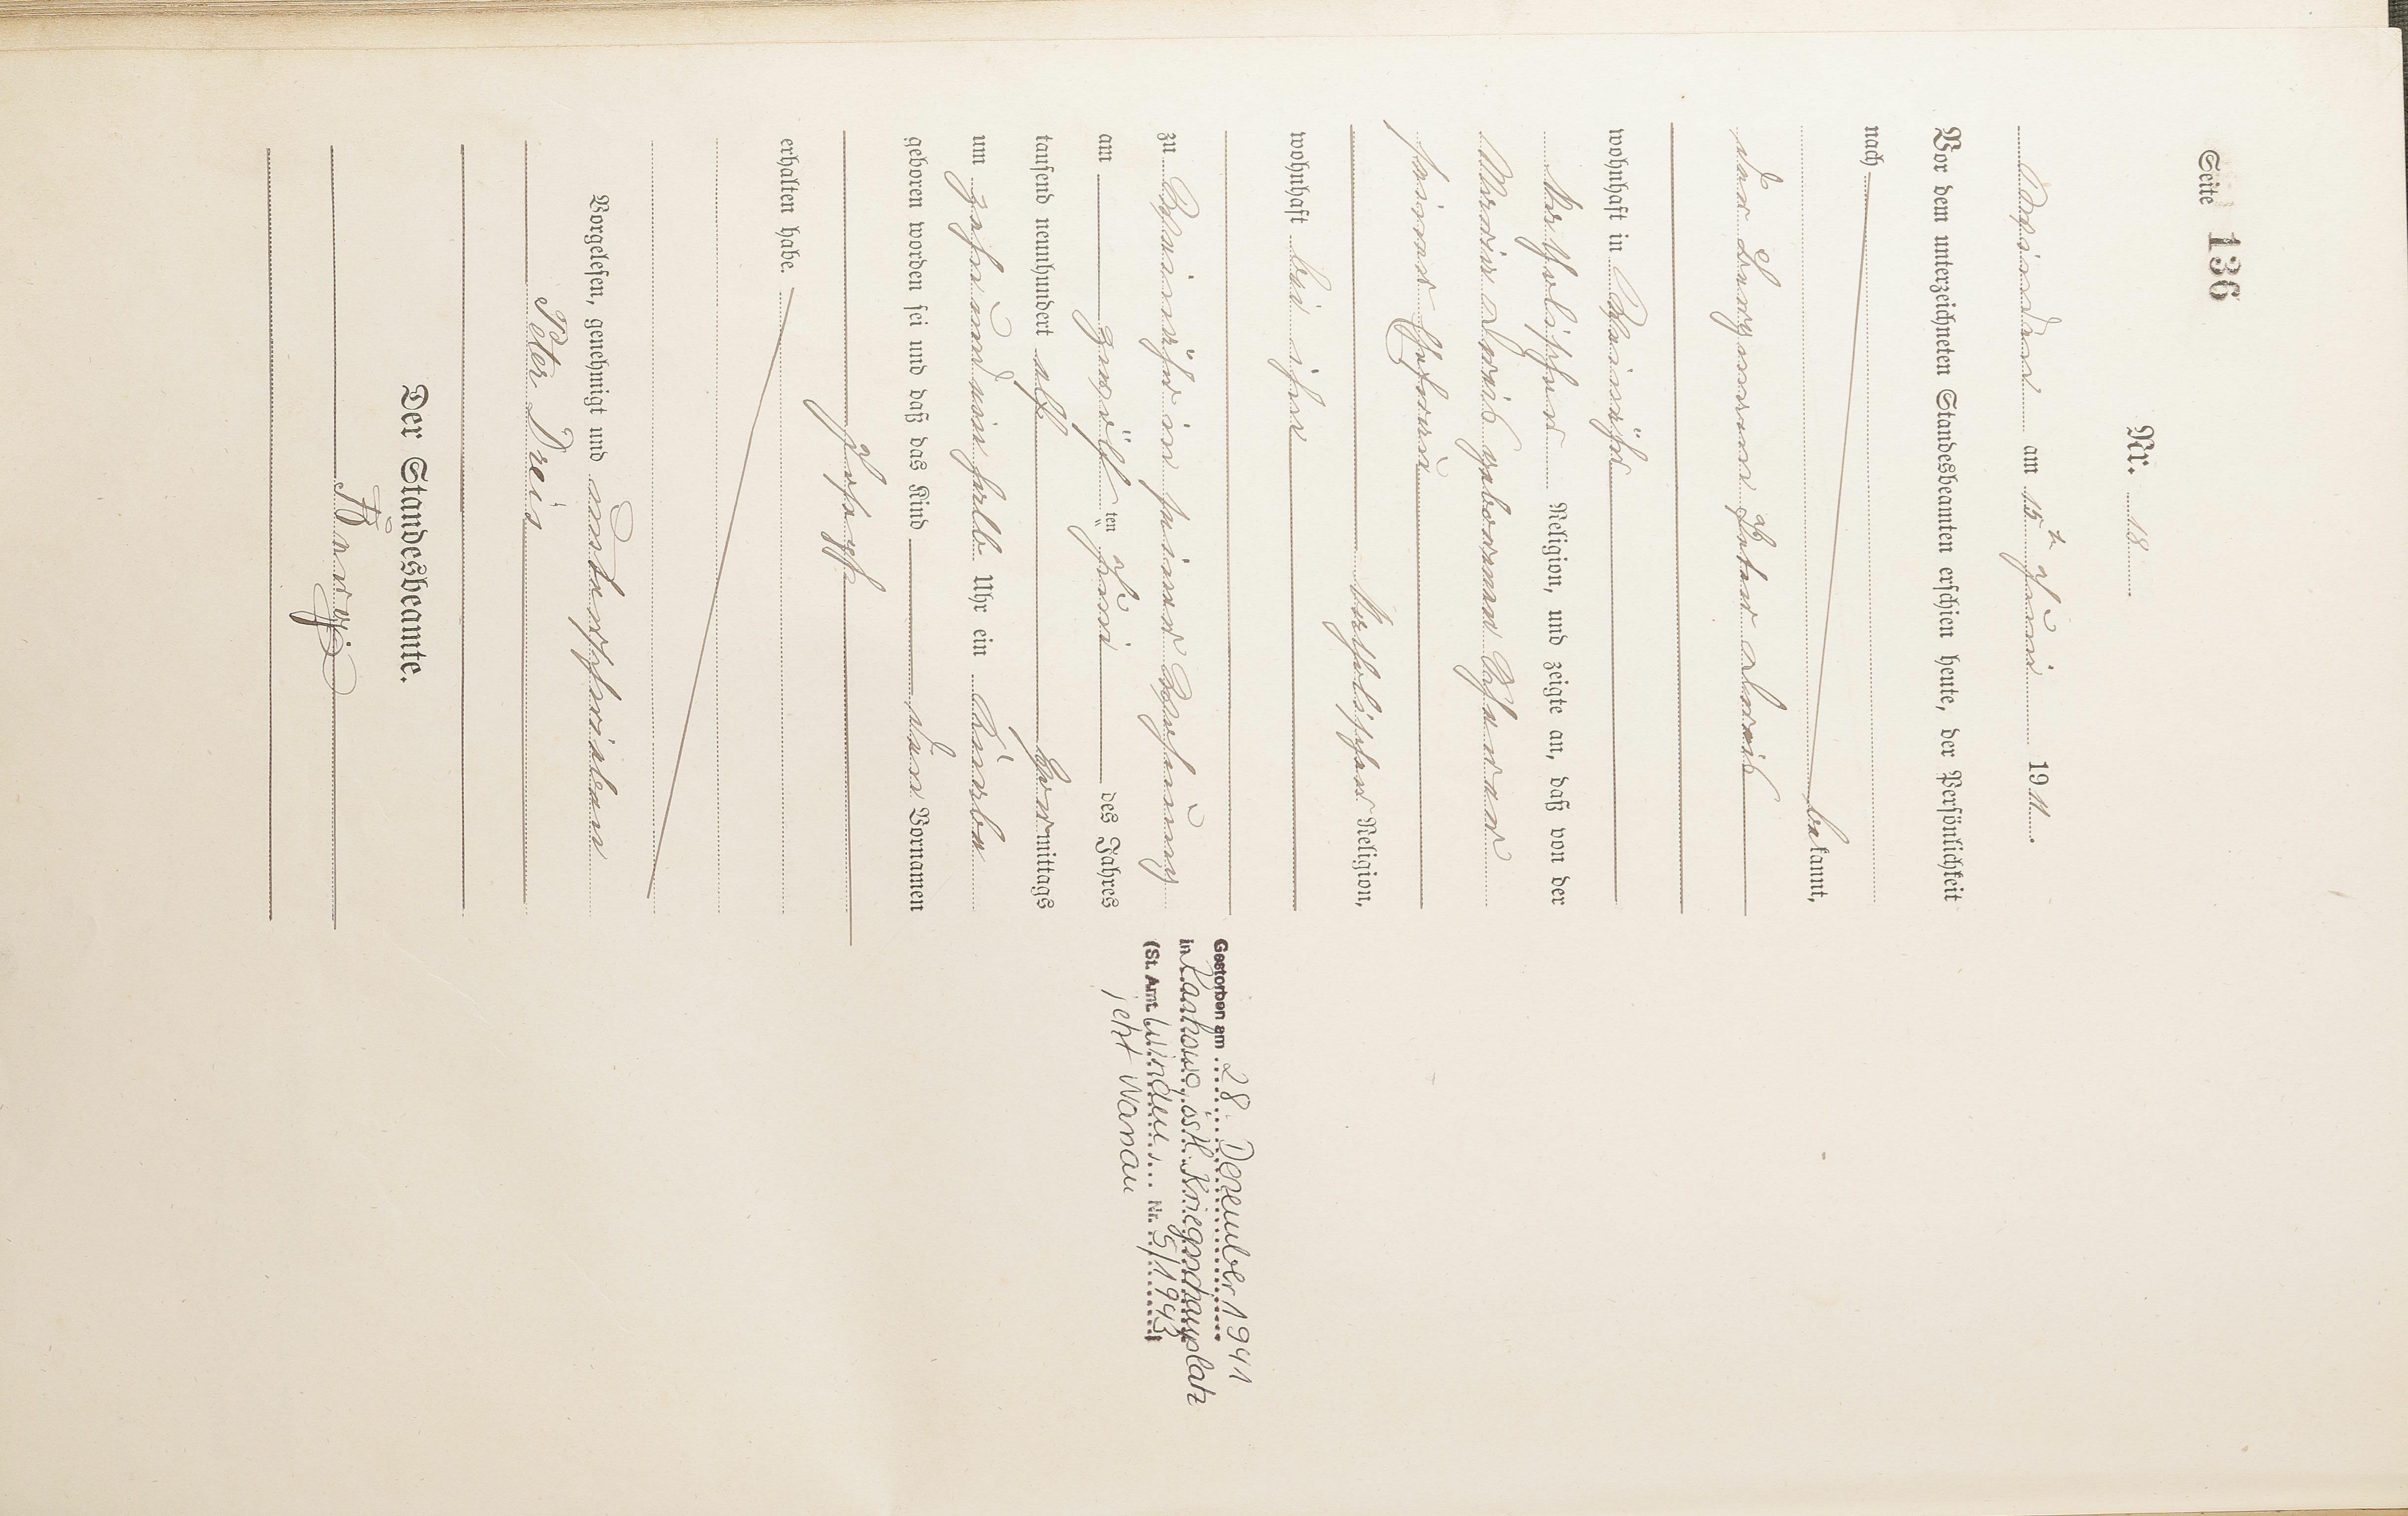 Seite 136
Nr. 18
Winden am 15ten Juni 1911.
Vor dem unterzeichneten Standesbeamten erschien heute, der Persönlichkeit
nach
bekannt,
der Bergmann Peter Dreis
wohnhaft in Weinähr
katholischer Religion, und zeigte an, daß von der
Maria Dreis geborenen
seiner Ehefrau
katholischer Religion,
wohnhaft bei ihm
zu Weinähr in seiner Wohnung
am zwölf ten Juni des Jahres
tausend neunhundert elf Vormittags
um zehnundeinhalb Uhr ein Knabe
geboren worden sei und daß das Kind den Vornamen
Joseph
erhalten habe.
Vorgelesen, genehmigt und unterschrieben
Peter Dreis
Der Standesbeamte.
Gestorben am 28. Dezember 1941
in östl. Kriegsschauplatz
(St. Amt Winden Nr. 5/1943)
jetzt Nassau